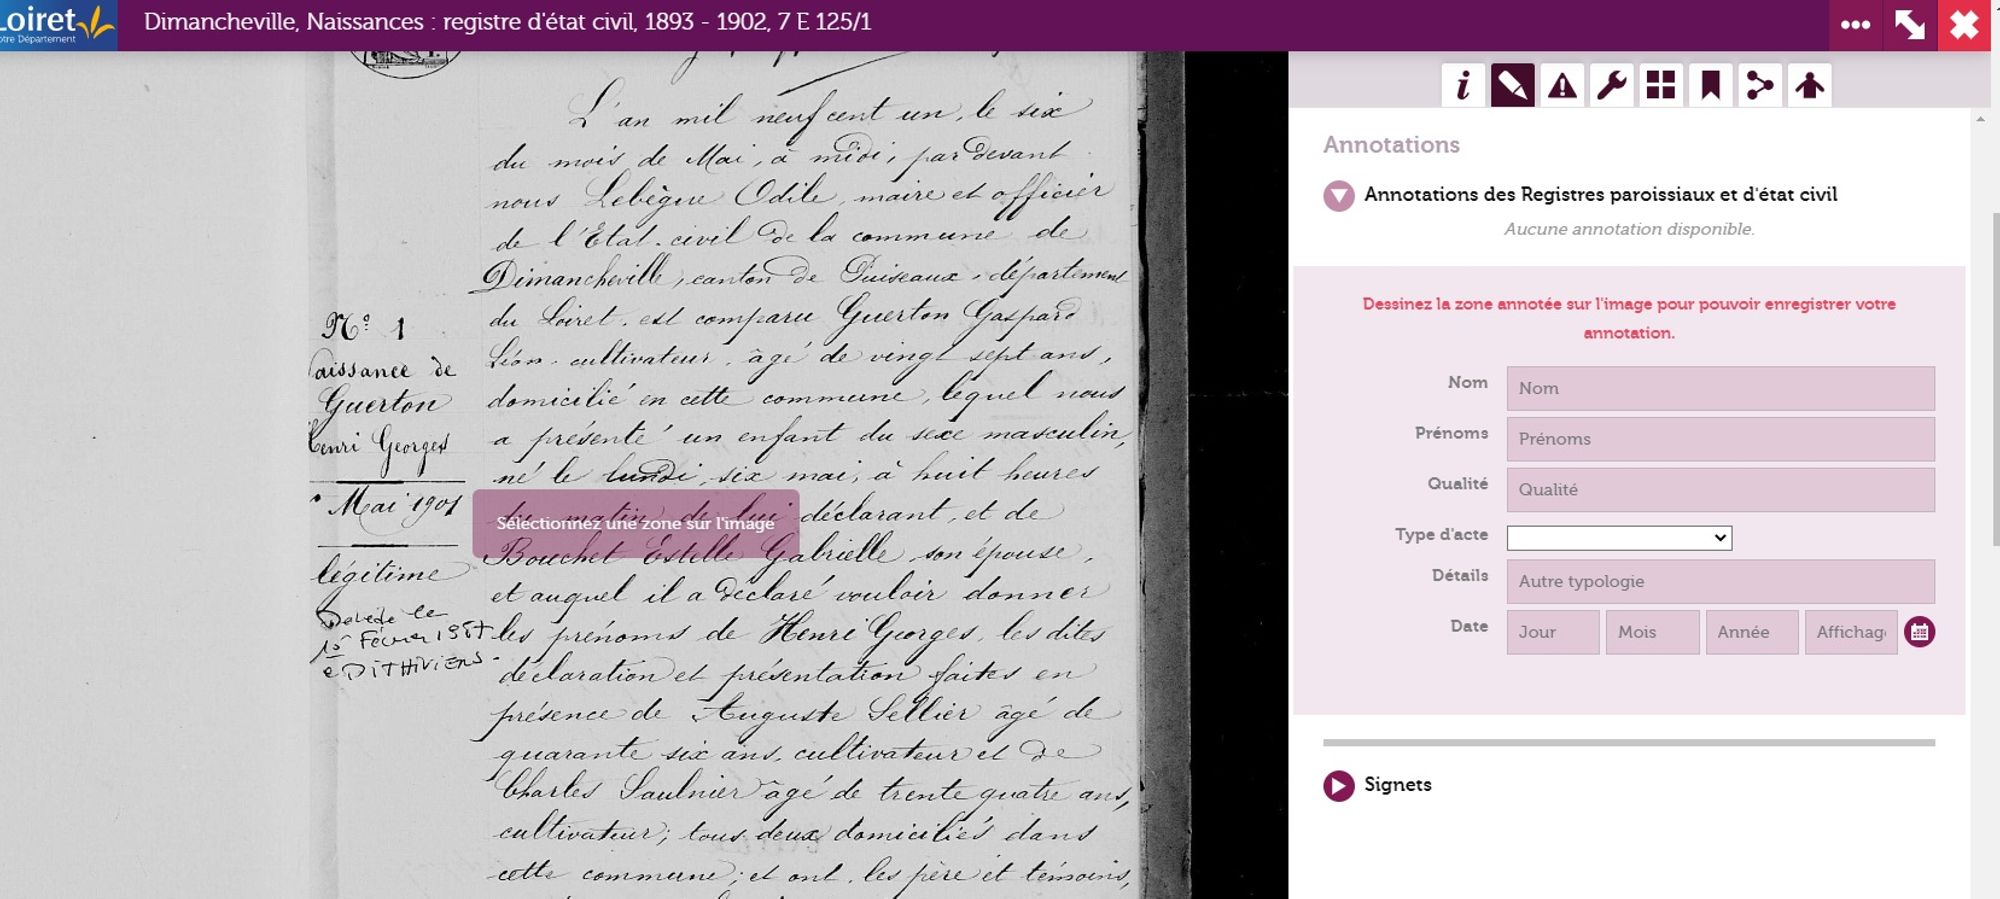 Loiret
otre Département
Dimancheville, Naissances : registre d'état civil, 1893 - 1902, 7 E 125/1
L'an mil neuf cent un, le six
du mois de Mai, à midi, par devant
nous Lebègue Odile, maire et officier
de l'Etat-civil de la commune de
Dimancheville, canton de Puiseaux, département
du Loiret, est comparu Guerton Gaspard
Léon, cultivateur, âgé de vingt sept ans,
domicilié en cette commune, lequel nous
a présenté un enfant du sexe masculin,
né le lundi, six mai, à huit heures
du matin de lui déclarant, et de
Bouchet Estelle Gabrielle son épouse,
et auquel il a déclaré vouloir donner
les prénoms de Henri Georges, les dites
déclaration et présentation faites en
présence de Auguste Sellier âgé de
quarante six ans, cultivateur et de
Charles Saulnier âgé de trente quatre ans,
cultivateur; tous deux domiciliés dans
cette commune; et ont, les père et témoins,
N° 1
Naissance de
Guerton
Henri Georges
Mai 1901
légitime
Décédé le
Février
à PITHIVIERS.
Sélectionnez une zone sur l'image
Annotations
Annotations des Registres paroissiaux et d'état civil
Aucune annotation disponible.
Dessinez la zone annotée sur l'image pour pouvoir enregistrer votre
annotation.
Nom Nom
Prénoms Prénoms
Qualité Qualité
Type d'acte
Détails Autre typologie
Date Jour Mois Année Affichag
Signets